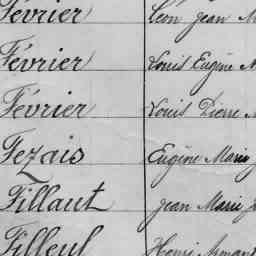 Février Léon Jean M
Février Louis Eugène M
Février Louis Pierre M
Fezais Eugène Marie
Fillaut Jean Marie J
Filleul Henri